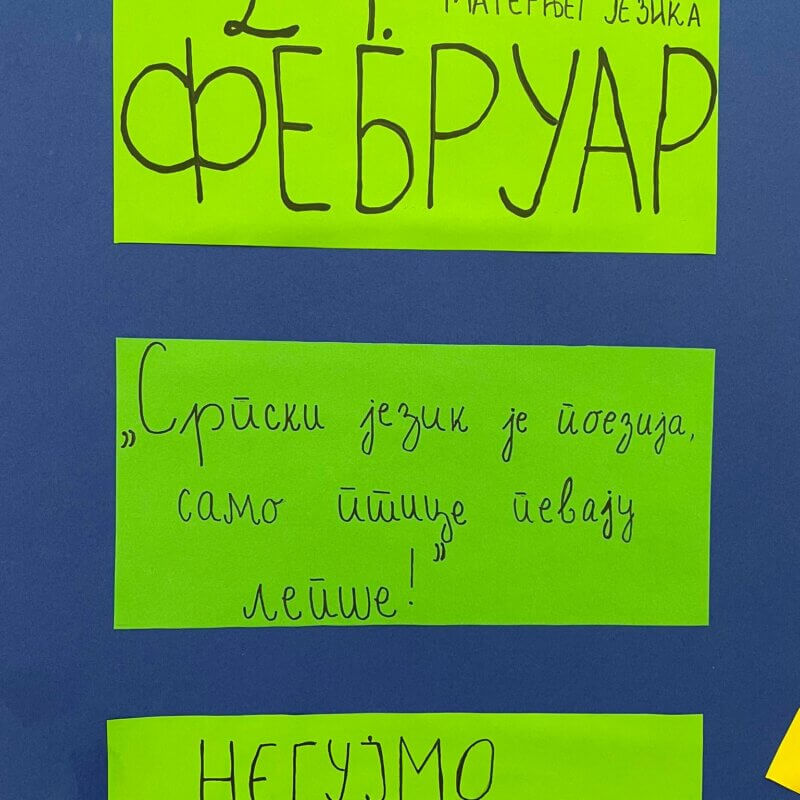 МАТЕРЊЕГ ЈЕЗИКА
21.
ФЕБРУАР
„Српски језик је поезија,
само птице певају
лепше!”
НЕГУЈМО